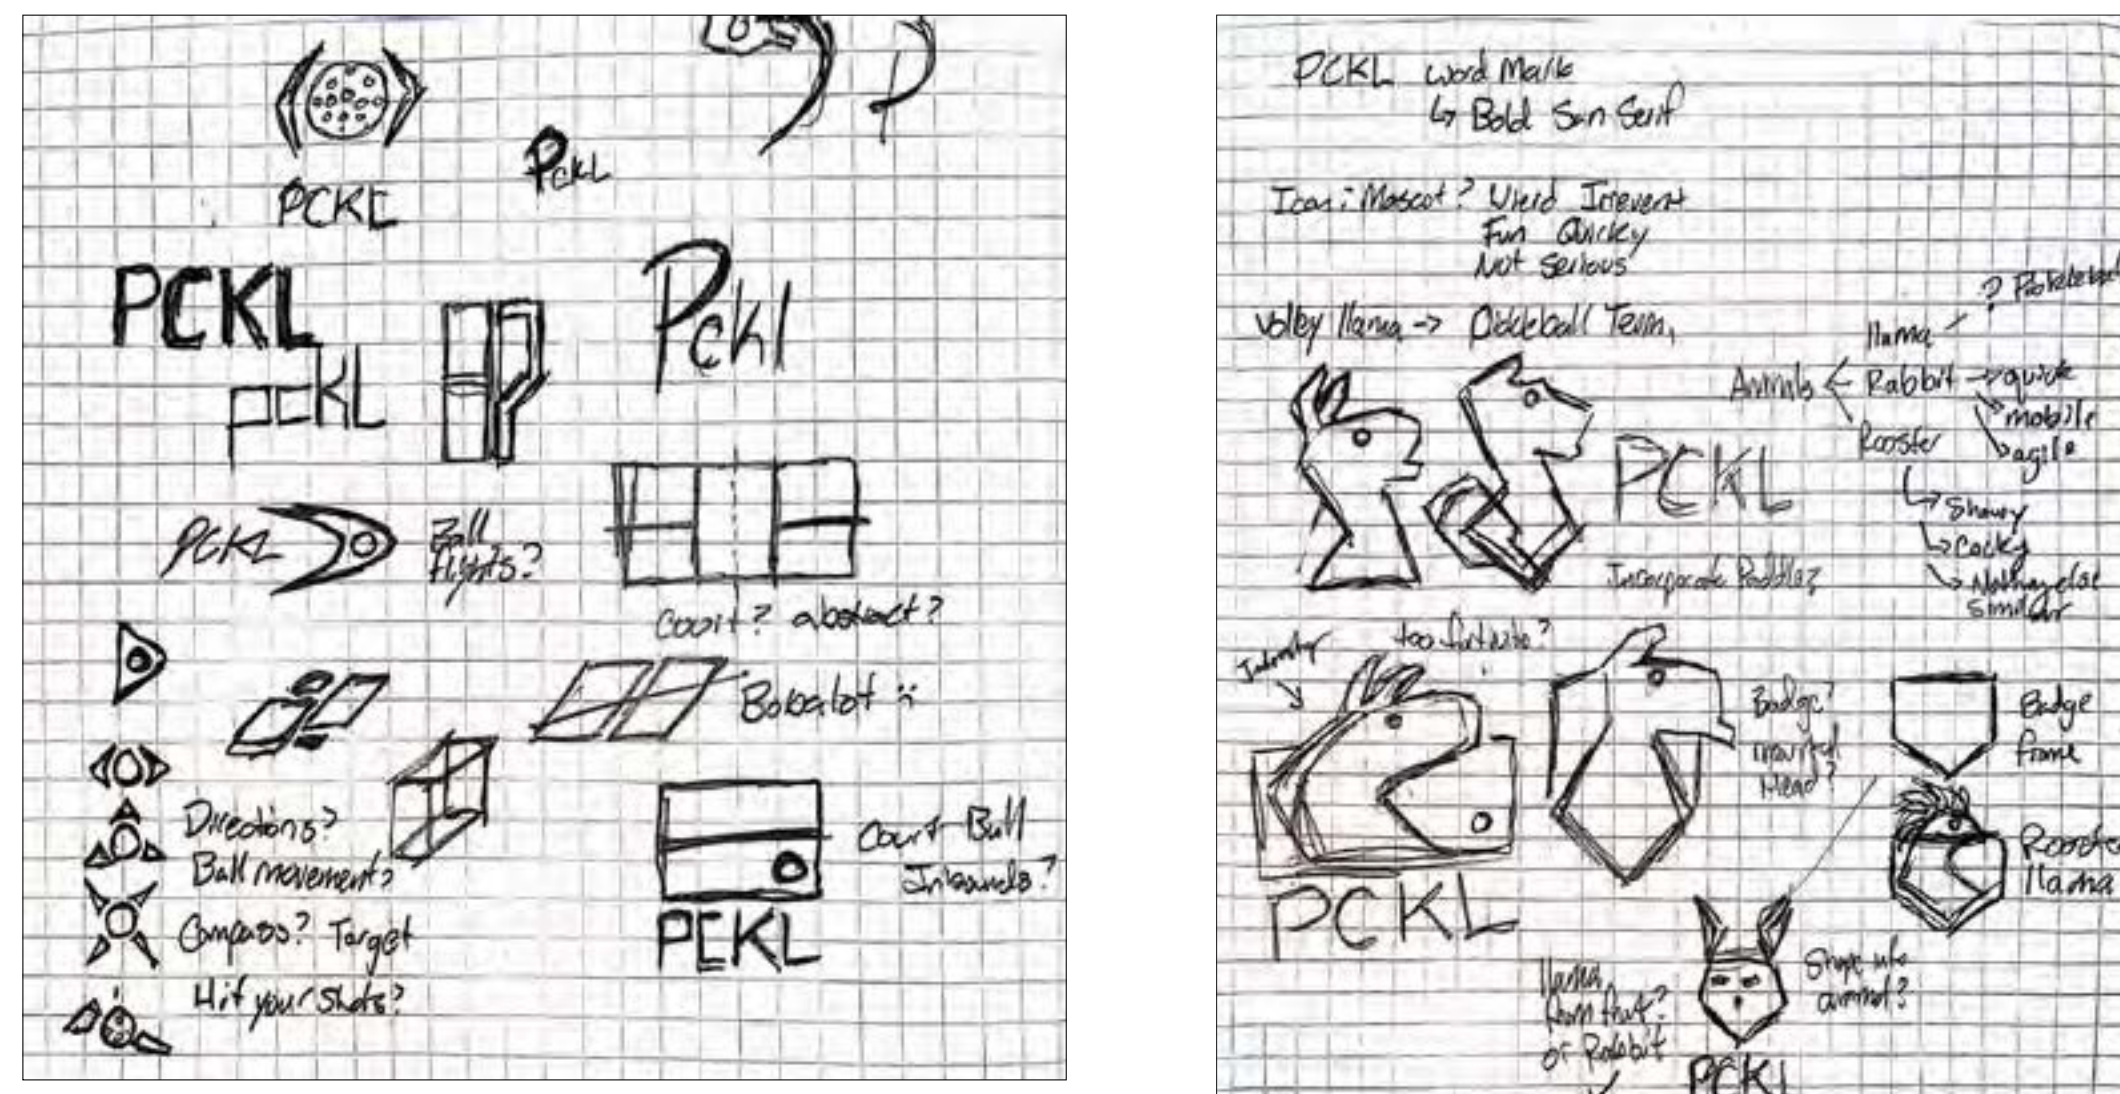 PCKL
PCKL
PCKL
pcKL
Pckl
PCKL
Ball
flights?
Court? abstract?
Bobalot :
Directions?
Ball movement?
Compass? Target
Hit your shots?
Court Ball
Inbounds?
PCKL
P
PCKL Word Mark
↳ Bold San Serif
Icon: Mascot? Wierd Irrevent
Fun Quicky
Not Serious
Volley llama -> Pickleball Term,
llama - ?
Animals Rabbit -> quick
mobile
agile
Rooster
Showy
Cocky
Nothing else
similar
PCKL
Incorporate Paddle?
too fortnite?
Badge?
Head?
Badge
frame
Rooster
llama
PCKL
llama
from front?
or Rabbit
Shape into
animal?
PCKL